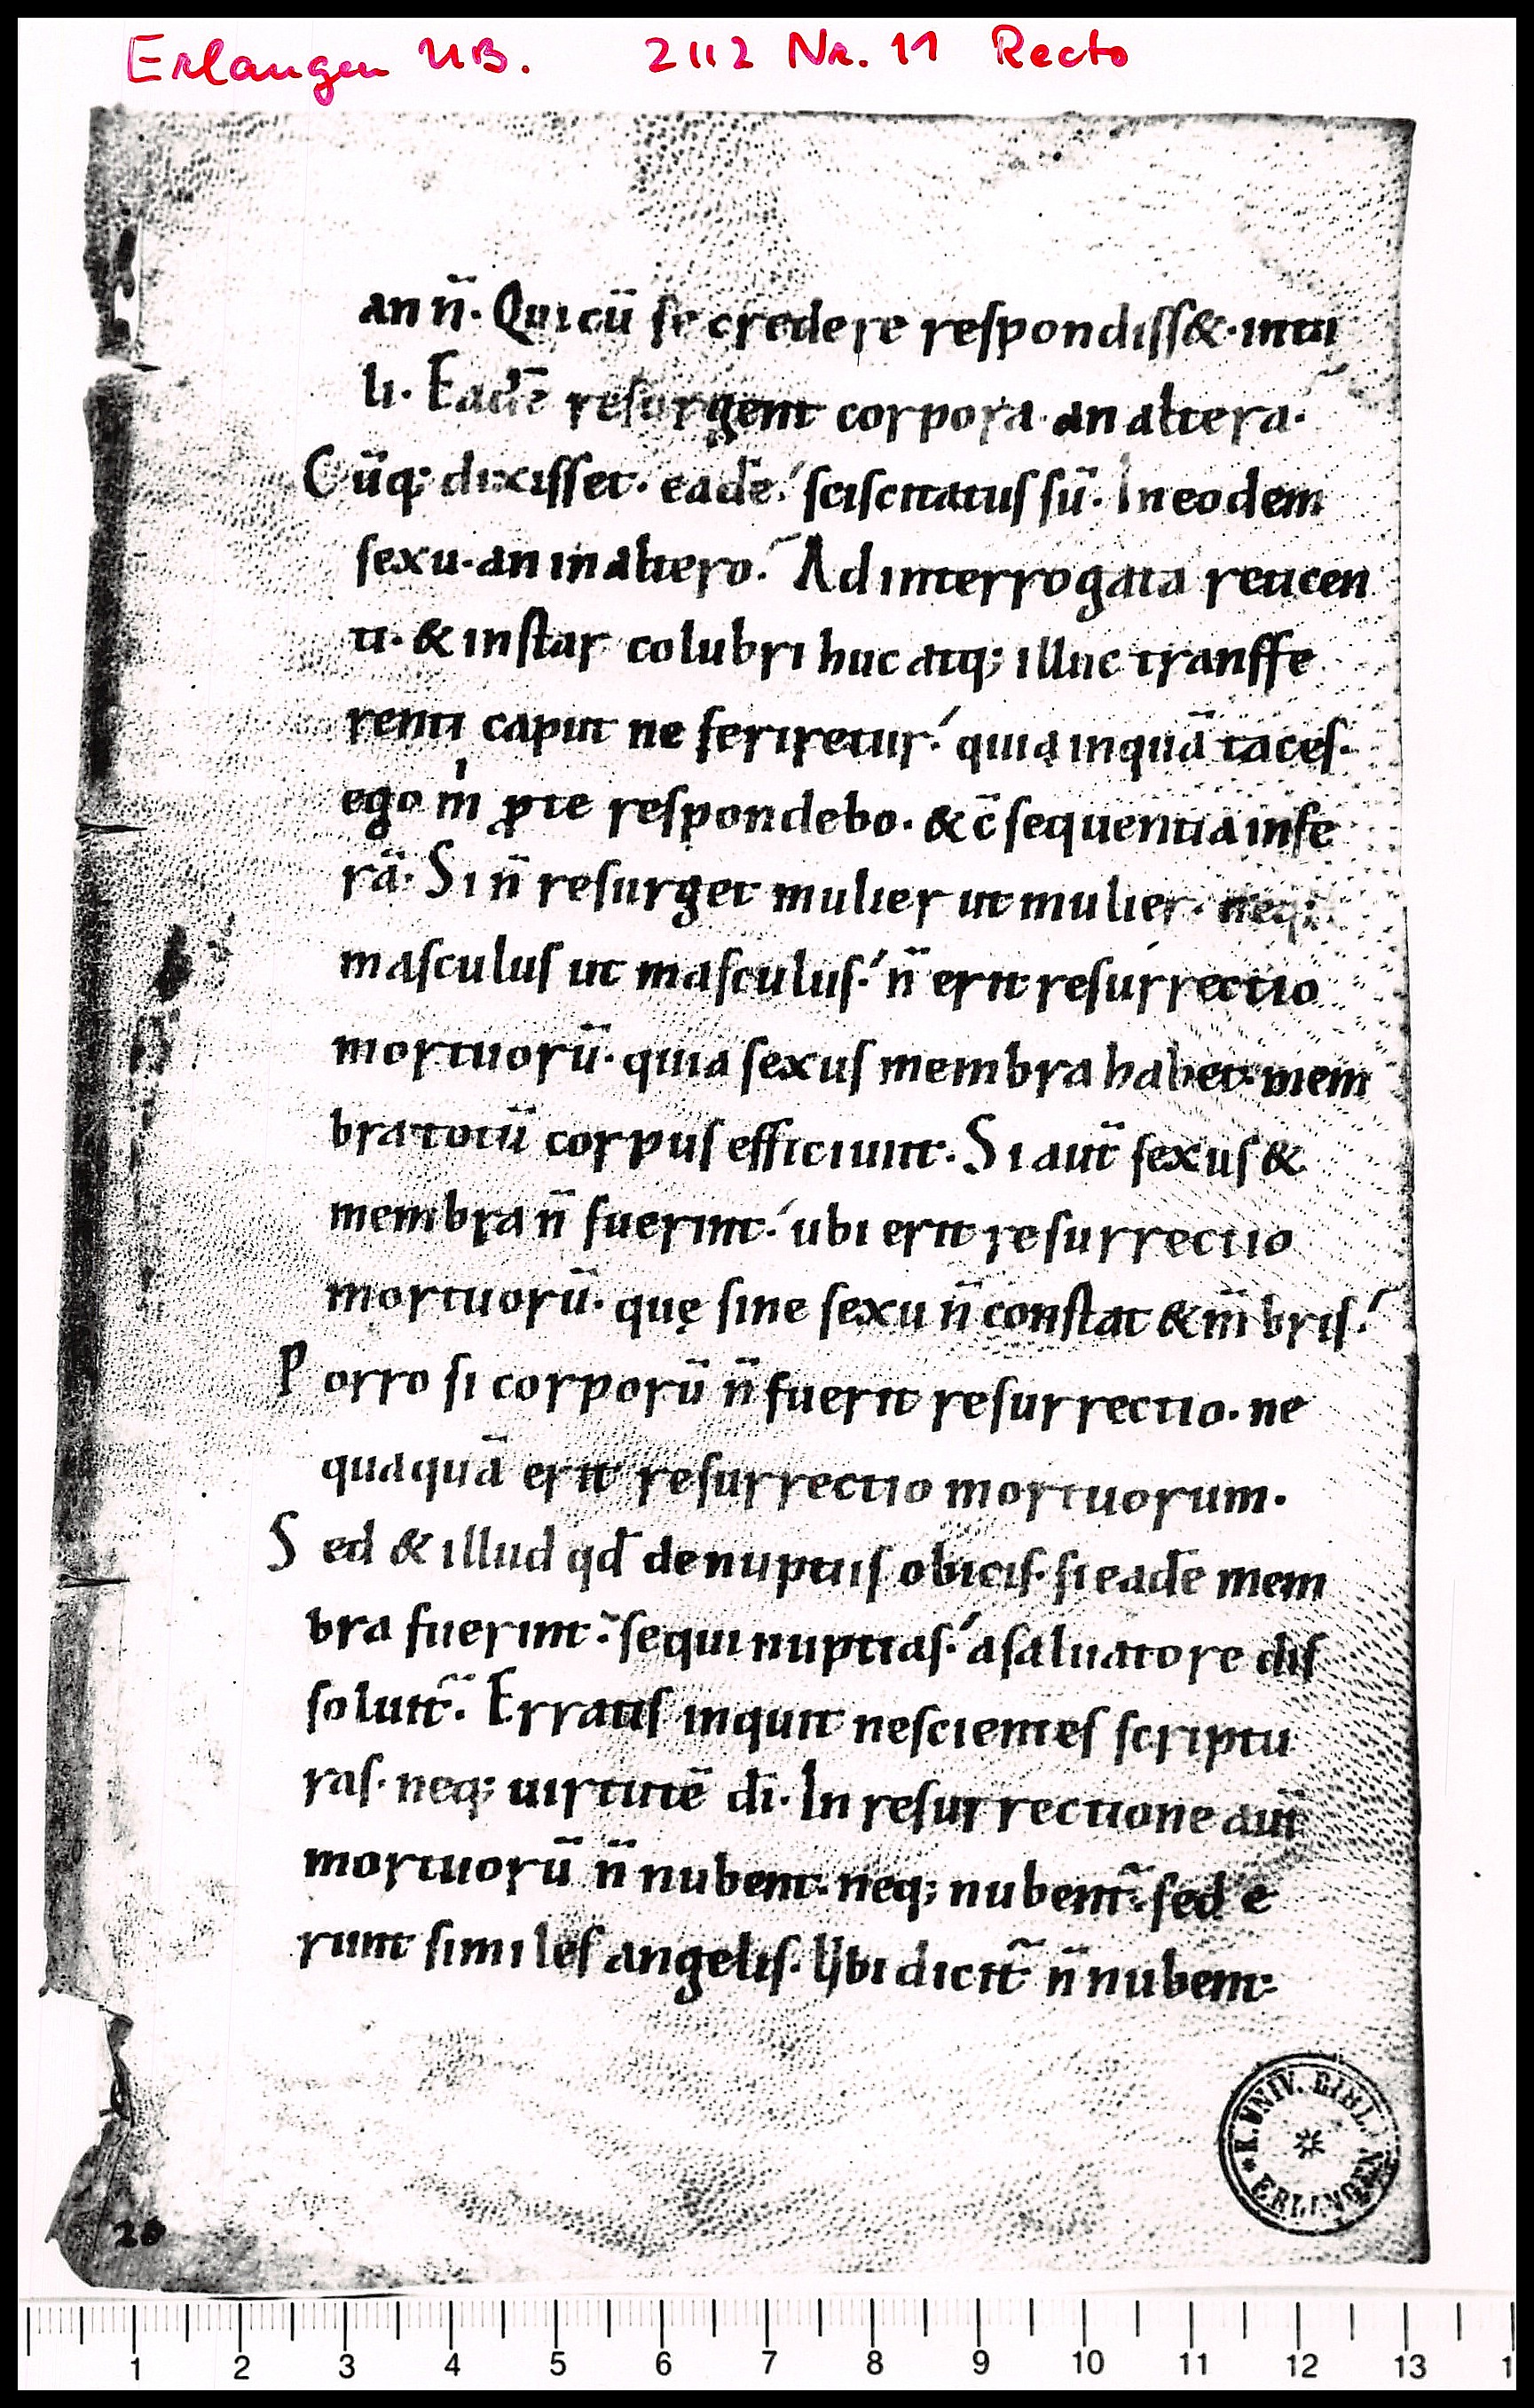 Erlangen UB. 2112 Nr. 11 Recto
an n̄. Qui cū se credere respondiss&. intu
li. Eadē resurgent corpora. an altera.
Cūq; dixisset. eadē. sciscitatus sū. In eodem
sexu. an in altero. Ad interrogata reticen
ti. & instar colubri huc atq; illuc transfe
renti caput ne feriretur. quia inquā taces.
ego m̄ ꝓ te respondebo. & c̄sequentia infe
rā. Si n̄ resurget mulier ut mulier. neq;
masculus ut masculus. n̄ erit resurrectio
mortuorū. quia sexus membra habet. mem
bra totū corpus efficiunt. Si aut̄ sexus &
membra n̄ fuerint. ubi erit resurrectio
mortuorū. quę sine sexu n̄ constat & m̄bris.
Porro si corporū n̄ fuerit resurrectio. ne
quaquā erit resurrectio mortuorum.
Sed & illud qd̄ de nuptiis obicis. si eadē mem
bra fuerint. sequi nuptias. a saluatore dis
soluit̄. Erratis inquit nescientes scriptu
ras. neq; uirtutē dī. In resurrectione aut̄
mortuorū n̄ nubent. neq; nubent̄. sed e
runt similes angelis. Ubi dicit̄ n̄ nubent.
K. UNIV. BIBL. ERLANGEN
20
1 2 3 4 5 6 7 8 9 10 11 12 13 1